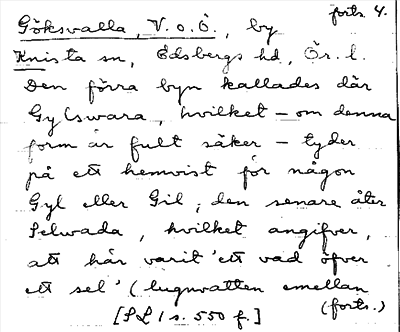 forts. 4.
Göksvalla, V. o. Ö., by
Knista sn, Edsbergs hd, Ör. l.
Den förra byn kallades där
Gylswara, hvilket – om denna
form är fult säker – tyder
på ett hemvist för någon
Gyl eller Gil, den senare åter
Selwada, hvilket angifver,
att här varit 'ett vad öfver
ett sel' (lugnvatten emellan
(forts.)
[SL 1 s. 550 f.]